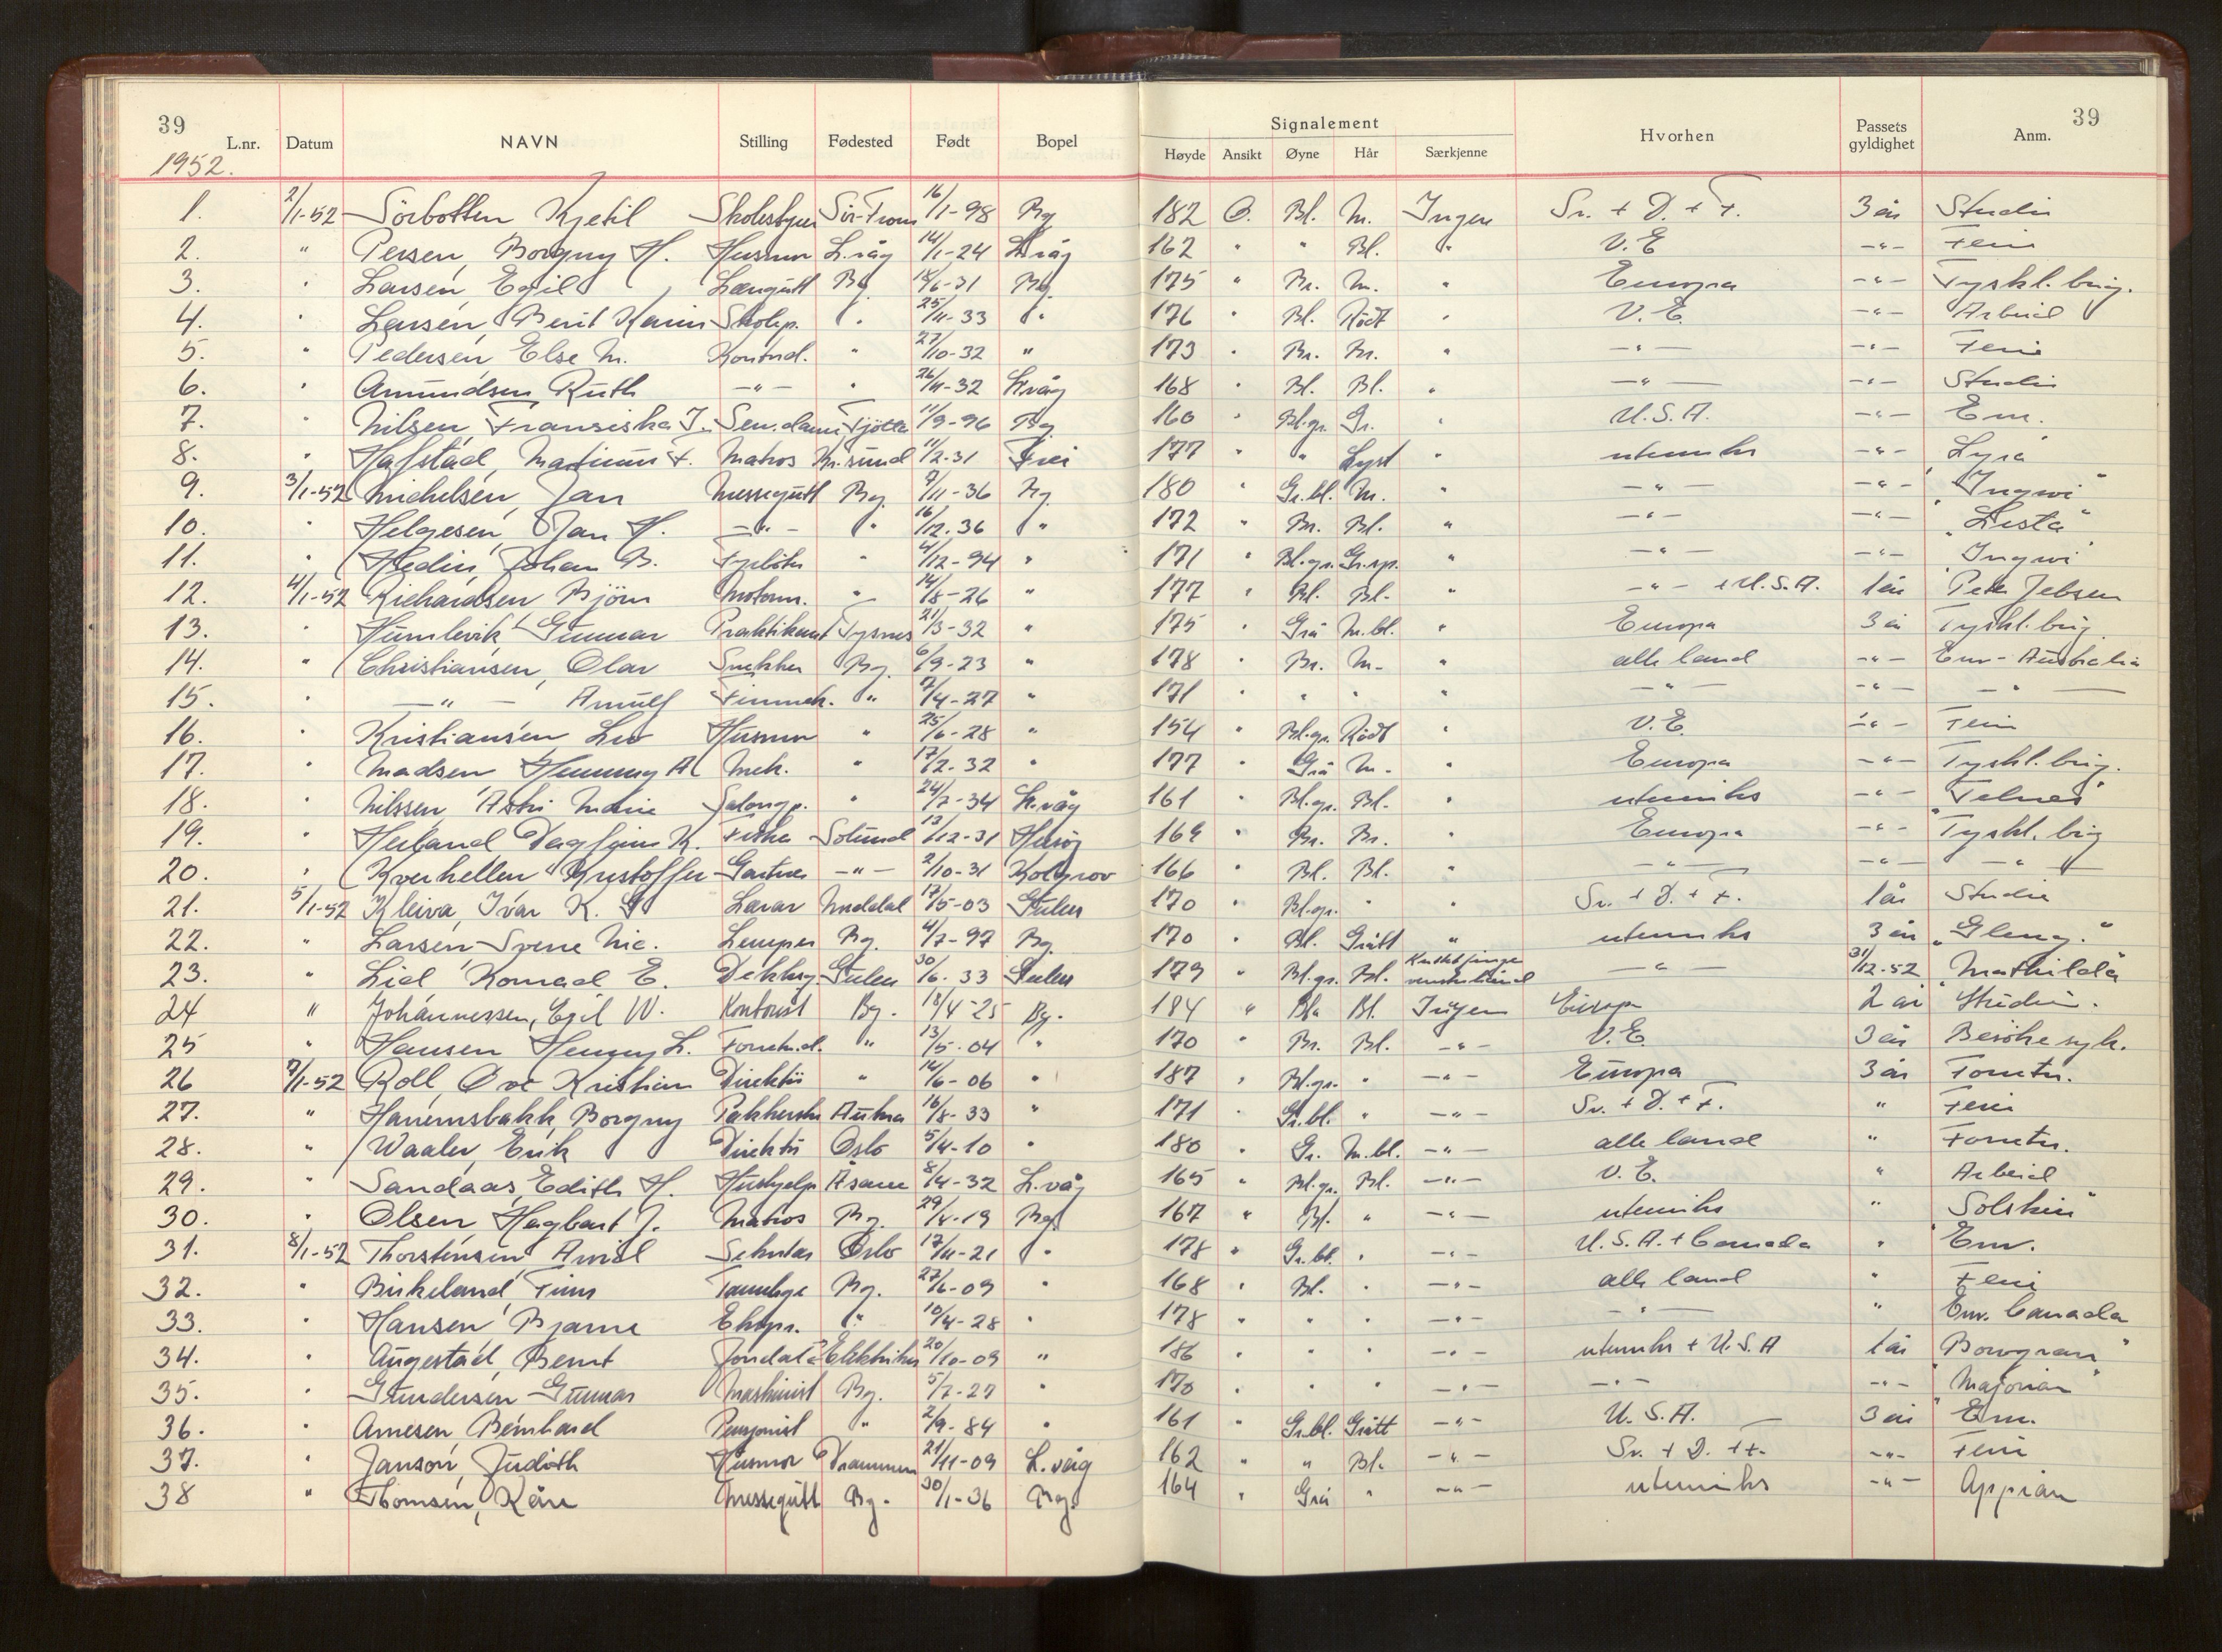 39
39
Signalement
L.nr. Datum NAVN Stilling Fødested Født Bopel Høyde Ansikt Øyne Hår Særkjenne Hvorhen Passets gyldighet Anm.
1952.
1. 2/1-52 Sörbotten Kjetil 16/1-98 Bg 182 O. Bl. M. Ingen Sv. + D. + F. 3 år Studie
2. " Persen, Borgny H. Husmor L.våg 14/1-24 L.våg 162 " " Bl. " V.E -"- Ferie
3. " Larsen, Egil Bg. 18/6-31 Bg. 175 " Br. M. " Europa -"- Tyskl.brig.
4. " Larsen, Berit Karin 25/11-33 " 176 " Bl. Rödt " V.E. -"- Arbeid
5. " Pedersen Else M. Kontord. " 27/10-32 " 173 " Br. Br. " -"- -"- Ferie
6. " Amundsen, Ruth -"- " 26/11-32 L.våg 168 " Bl. Bl. " -"- -"- Studie
7. " Nilsen, Fransiska J. Tjötta 11/9-96 Bg. 160 " Bl.gr. Gr. " U.S.A. -"- Em.
8. " Hafstad, F. Matros Kr.sund 11/2-31 Frei 177 " " Lyst " utenriks -"- Lyra
9. 3/1-52 Michelsen, Jan Messegutt Bg. 7/11-36 Bg. 180 " Gr.bl. M. " -"- -"- "Ingwi"
10. " Helgesen, Jan H. -"- " 16/12.36 " 172 " Br. Bl. " -"- -"- "Lista"
11. " Hedin, Johan B. Fyrböter " 4/12-94 " 171 " Bl.gr. Gr.sp. " -"- -"- Ingwi
12. 4/1-52 Richardsen, Björn Motorm. " 14/8-26 " 177 " Bl. Bl. " -"- + U.S.A. 1 år Peter Jebsen
13. " Humlevik Gunnar Praktikant Tysnes 21/3-32 " 175 " Grå M.bl. " Europa 3 år Tyskl.brig.
14. " Christiansen, Olav Snekker Bg. 6/9-23 " 178 " Br. M. " alle land -"- Em - Australia
15. " -"- Arnulf " 7/4-27 " 171 " " " " -"- -"- -"-
16. " Kristiansen, Liv Husmor " 25/6-28 " 154 " Bl.gr. Rödt " V.E. -"- Ferie
17. " Madsen Henning A Mek. " 17/2-32 " 177 " Grå M. " Europa -"- Tyskl.brig.
18. " Nilssen, Astri Marie Salongp. " 24/7-34 L.våg 161 " Bl.gr. Bl. " utenriks -"- "Telnes"
19. " Dagfinn K. Fisker Solund 13/12-31 169 " Br. Br. " Europa -"- Tyskl.brig
20. " Kverhellen Kristoffer Gartner -"- 2/10-31 Kolgrov 166 " Bl. Bl. " -"- -"- -"-
21. 5/1-52 Kleiva, Ivar K. G Lærar 17/5-03 Gulen 170 " Bl.gr. " " Sv. + D. + F. 1 år Studie
22. " Larsen Sverre Nic. Lemper Bg. 4/7-97 Bg. 170 " Bl. Grått " utenriks 3 år "Gleny."
23. " Lid Konrad E. Gulen 30/6.33 Gulen 179 " Bl.gr. Bl. -"- 31/12-52 "Mathilda"
24 " Johannessen, Egil W. Kontorist Bg. 13/4-25 Bg. 184 " Blå Bl. Ingen Europa 2 år Studie.
25 " Hansen Henny L. " 13/5-04 " 170 " Br. Bl. -"- V.E. 3 år Besöke syk.
26 7/1-52 Roll, Ove Kristian Direktör " 14/6-06 " 187 " Bl.gr. " -"- Europa 3 år Forretn.
27. " Hanemsbakk, Borgny Aukra 16/8-33 " 171 " Gr.bl. " -"- Sv. + D. + F. " Ferie
28. " Waaler, Erik Direktör Oslo 5/4-10 " 180 " Gr. M.bl. -"- alle land " Forretn.
29. " Sandaas, Edith H. Hushjelp Åsane 8/4-32 L.våg 165 " Bl.gr. Bl. -"- V.E. " Arbeid
30. " Olsen Hagbart J. Matros Bg. 29/4-19 Bg. 167 " Bl. " -"- utenriks " "Solskin"
31. 8/1-52 Thorstensen, Arvid Sekretær Oslo 17/11-21 " 178 " Gr.bl. " -"- U.S.A. + Canada " Em.
32. " Birkeland, Finn Tannlege Bg. 27/6-09 " 168 " Bl. " -"- alle land " Ferie
33. " Hansen Bjarne Eksp. " 10/4-28 " 178 " " " -"- -"- " Em. Canada
34. " Augestad, Bernt Jondal Elektriker 20/10-09 " 186 " " " -"- utenriks + U.S.A 1 år "Bowgran"
35. " Gundersen Gunnar Maskinist Bg. 5/7-27 " 170 " " " -"- -"- -"- "Majorian"
36. " Arnesen, Bernhard Pensjonist " 2/9-84 " 161 " Gr.bl. Grått -"- U.S.A. 3 år Em.
37. " Janson, Judith Husmor Drammen 21/11-09 L.våg 162 " " Bl. -"- Sv. + D. + F. -"- Ferie
38 " Thomsen, Kåre Messegutt Bg. 30/1-36 Bg. 164 " Grå " -"- utenriks -"- Appian